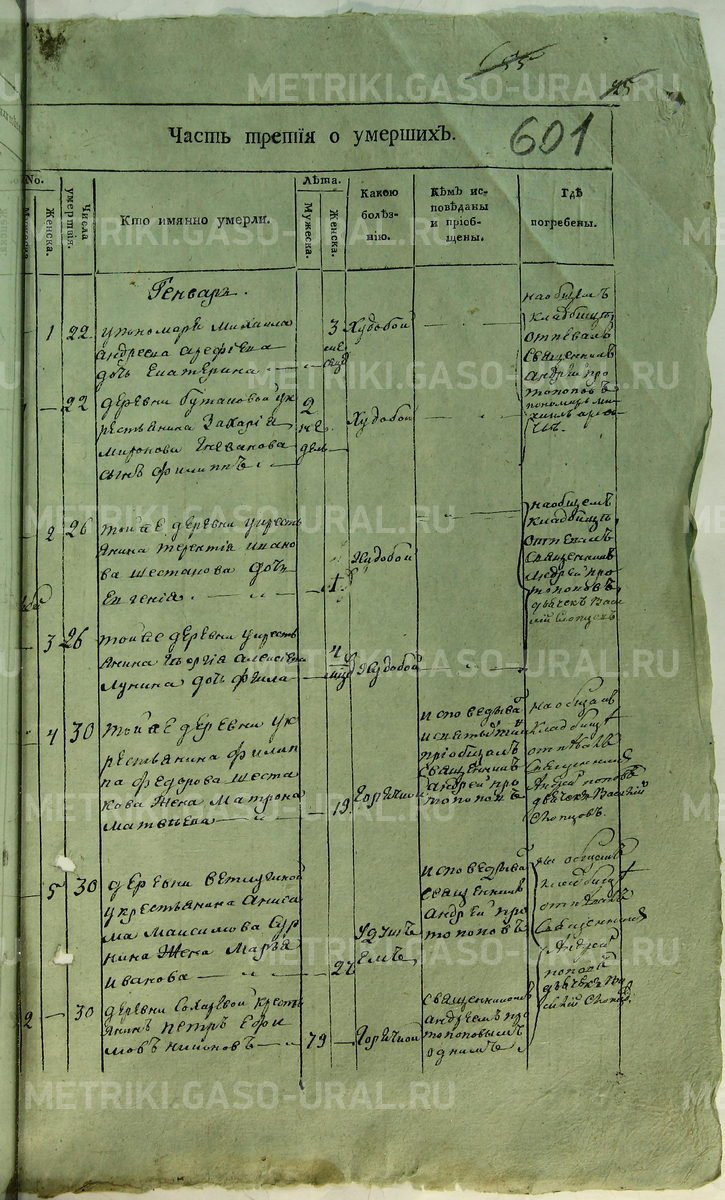 55
45
Часть третїя о умершихъ.
601
No.
Женска.
Числа умертвїя.
Кто имянно умерли.
Лѣта.
Мужеска.
Женска.
Какою
болѣз-
нїю.
Кѣмъ ис-
повѣданы
и прїоб-
щены.
Гдѣ
погребены.
Генварь.
1
22
упономаря Михаила
Андреева Арефїева
дочь Екатерина
3
Худобой
наобщемъ
кладбищѣ
отпевалъ
священникъ
Андрей про
топоповъ
1
22
деревни Бутаковой ук
рестьянина Захарїя
Миронова
сынъ Филиппъ
2
не
дель
Худобой
2
26
тойже деревни укресть
янина Терентїя Ивано
ва Шестакова дочь
Евгенїя
Худобой
наобщемъ
кладбищѣ
отпевалъ
священникъ
Андрей про
топоповъ
дьячекъ Васи
лїй Скопцовъ
3
26
тойже деревни укресть
янина Георгїя Алексїева
Лунина дочь
4
Худобой
4
30
тойже деревни ук
рестьянина Филип
па Федорова Шеста
кова жена Матрона
Матвеева
19
Горячкой
исповедывал
прїобщалъ
священникъ
Андрей про
топоповъ
наобщемъ
кладбищѣ
отпѣвалъ
священникъ
Андрей поповъ
дьячекъ Василїй
Скопцовъ.
5
30
деревни Ветлугиной
укрестьянина Аниси
ма Максимова Бур
нина жена Марѳа
Иванова
27
Удушь
емъ
исповедывал
священникъ
Андрей про
топоповъ
на общемъ
кладбищѣ
отпѣвалъ
священникъ
Андрей
поповъ
дьячекъ Ва
силїй Скопцов
2
30
деревни Сохаревой кресть
янинъ Петръ Ефи
мовъ Никоновъ
79
Горячкой
священникомъ
Андреемъ про
топоповымъ
однимъ
METRIKI.GASO-URAL.RU